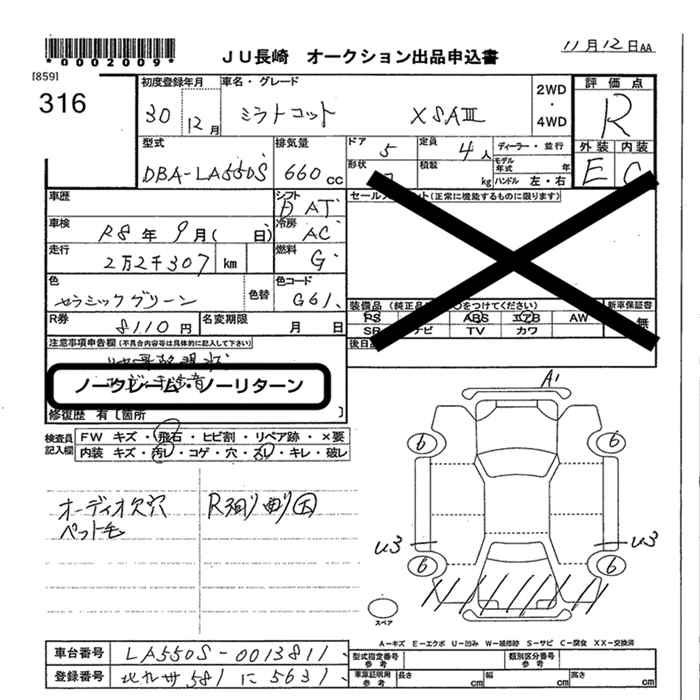 *0002009*
[859]
316
JU長崎 オークション出品申込書
11月12日AA
初度登録年月 車名・グレード
30 12月 ミラトコット XSAⅢ
2WD・4WD
評価点
R
外装 内装
E C
型式 排気量
DBA-LA550S 660cc
ドア 5 定員 4人
ディーラー・並行
形状 積載 kg
モデル年式 年
ハンドル 左・右
車歴
シフト AT
車検 R8年9月( 日)
冷房 AC
走行 2万2千307 km
燃料 G
色 色替 色コード
セラミックグリーン G61
R券 8110円 名変期限 月 日
セールスポイント(正常に機能するものに限ります)
装備品 (純正品 ○をつけてください)
新車保証書
無
PS ABS エアB AW
SR ナビ TV カワ
注意事項申告欄 (不具合内容等は具体的に記入して下さい)
ノークレーム・ノーリターン
修復歴 有 [箇所 ]
検査員記入欄
FW キズ・飛石・ヒビ割・リペア跡・×要
内装 キズ・汚レ・コゲ・穴・スレ・キレ・破レ
オーディオ欠穴
ペット毛
A1
6 6
U3 U3
6 6
スペア
A=キズ E=エクボ U=凹み W=補修跡 S=サビ C=腐食 XX=交換済
車台番号 LA550S-0013811
登録番号 北九州581に5631
型式指定番号 参考
類別区分番号 参考
車庫証明用 参考
長さ cm 幅 cm 高さ cm